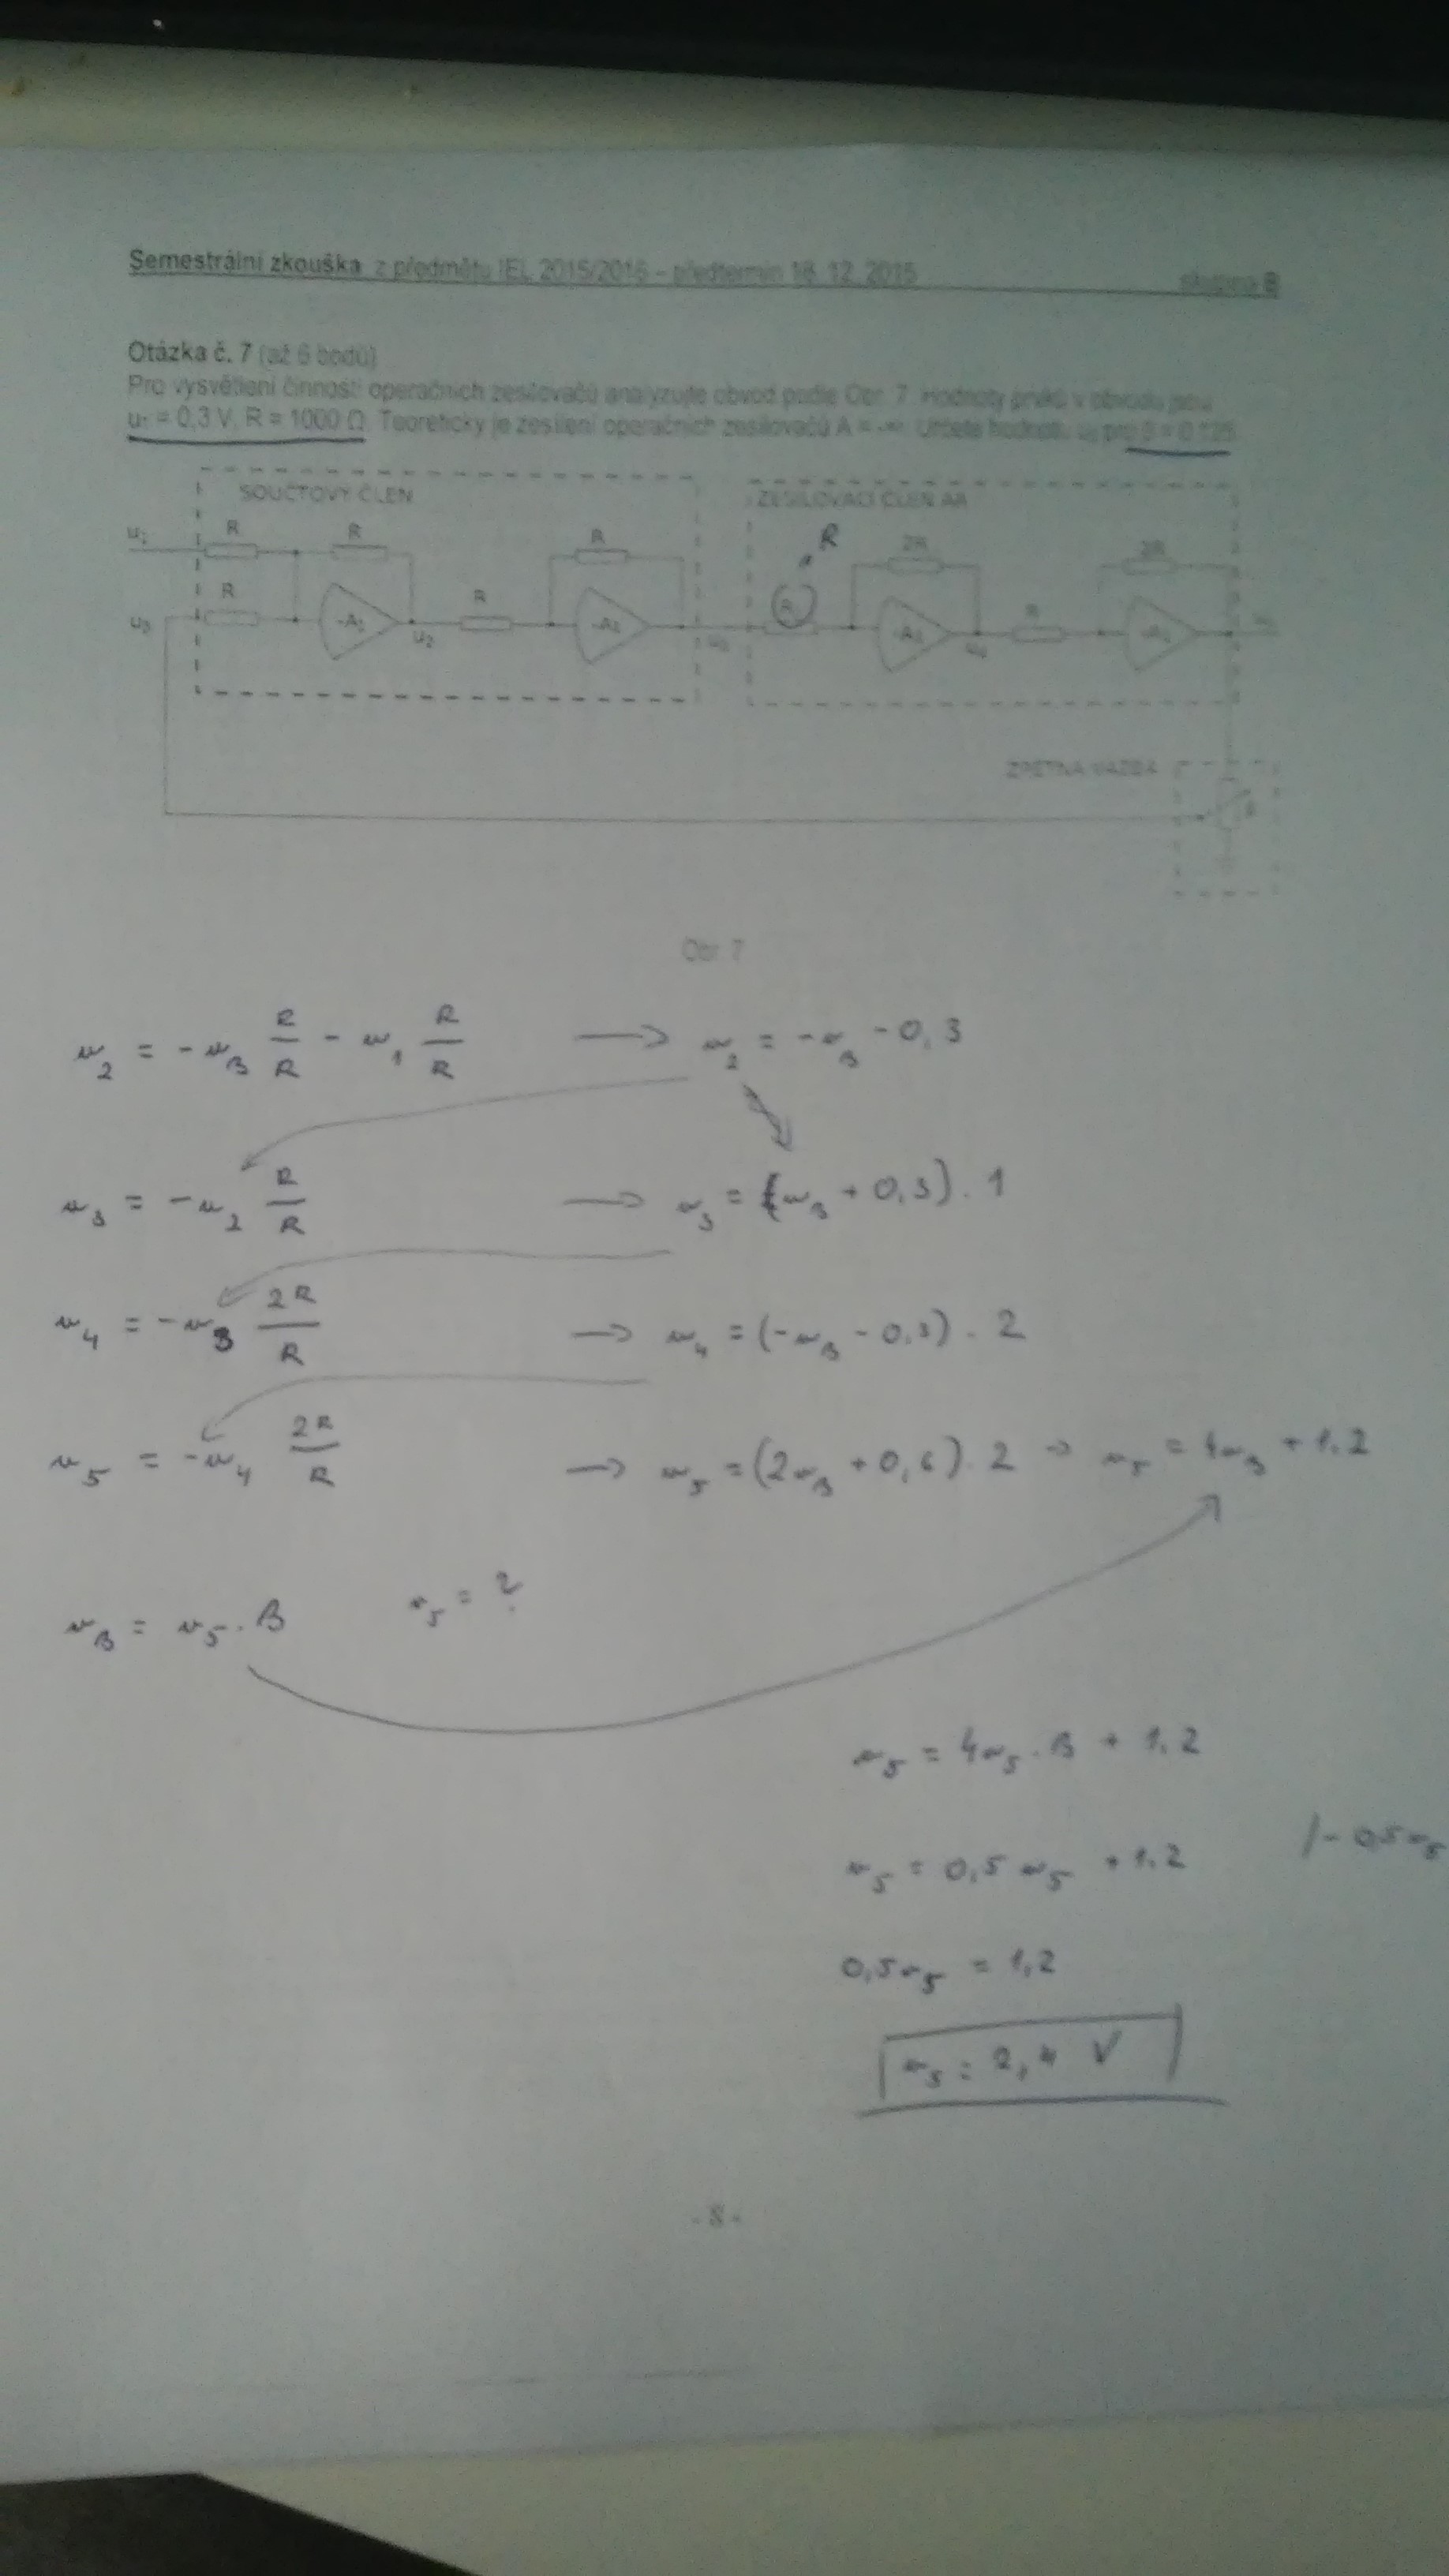 Semestrální zkouška z předmětu IEL 2015/2016 – předtermín 18. 12. 2015 skupina B
Otázka č. 7 (až 6 bodů)
Pro vysvětlení činnosti operačních zesilovačů analyzujte obvod podle Obr. 7. Hodnoty prvků v obvodu jsou
u₁ = 0,3 V, R = 1000 Ω. Teoreticky je zesílení operačních zesilovačů A = -∞. Určete hodnotu pro β = 0,125.
SOUČTOVÝ ČLEN
ZESILOVACÍ ČLEN AA
u₁ R R R R 2R 2R
uᵦ R -A₁ u₂ R -A₂ u₃ R -A₃ u₄ R -A₄ u₅
ZPĚTNÁ VAZBA
Obr. 7
u₂ = -uB R/R - u₁ R/R → u₂ = -uB - 0,3
u₃ = -u₂ R/R → u₃ = (uB + 0,3) . 1
u₄ = -u₃ 2R/R → u₄ = (-uB - 0,3) . 2
u₅ = -u₄ 2R/R → u₅ = (2uB + 0,6) . 2 → u₅ = 4uB + 1.2
uB = u₅ . B u₅ = ?
u₅ = 4u₅ . B + 1.2
u₅ = 0,5 u₅ + 1.2 /- 0,5u₅
0,5u₅ = 1,2
u₅ = 2,4 V
- 8 -